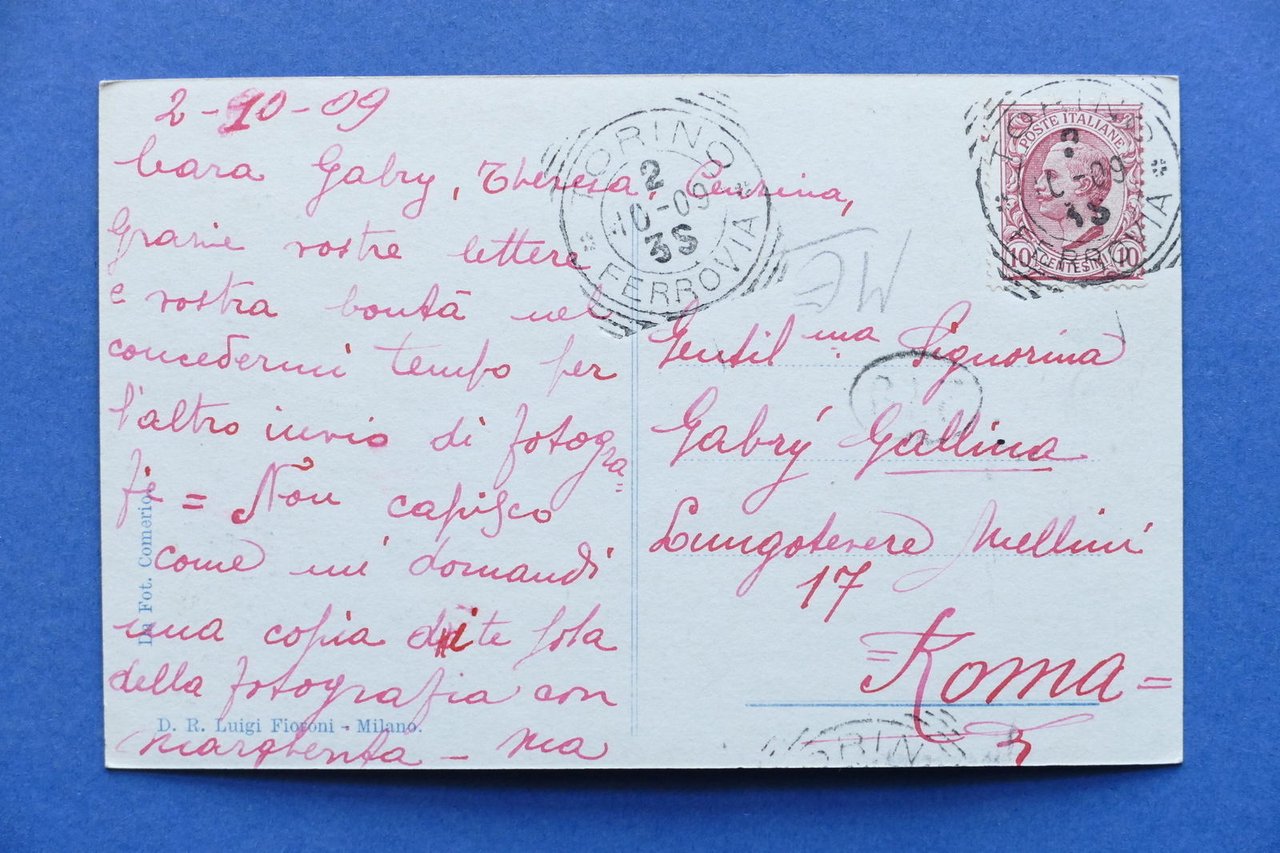 2-10-09
Cara Gabry, Theresa, Cennina,
Grazie vostre lettere
e vostra bontà nel
concedermi tempo per
l'altro invio di fotogra
fi = Non capisco
come mi domandi
una copia di te sola
della fotografia con
margherita - ma
Da Fot. Comerio.
D. R. Luigi Fioroni - Milano.
TORINO
2
10-09
3S
FERROVIA
POSTE ITALIANE
10 CENTESIMI 10
TORINO
-09
3S
FERROVIA
ME
Gentil ma Signorina
Gabrÿ Gallina
Lungotevere Mellini
17
= Roma =
ORIN